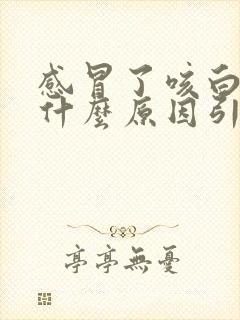 感冒了咳白
什麼原因引
亭亭無憂